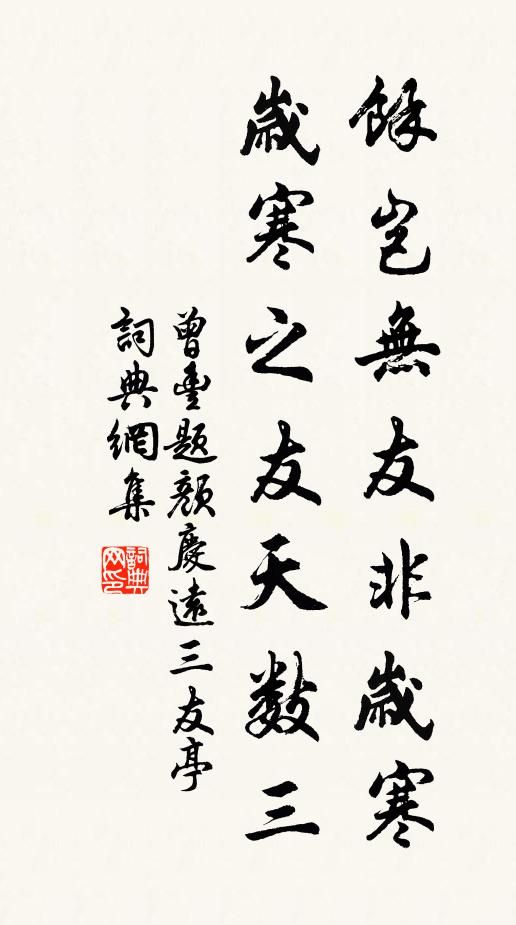 餘豈無友非歲寒
歲寒之友天數三
曾豐題顏慶遠三友亭
詞典網集
詞典网印